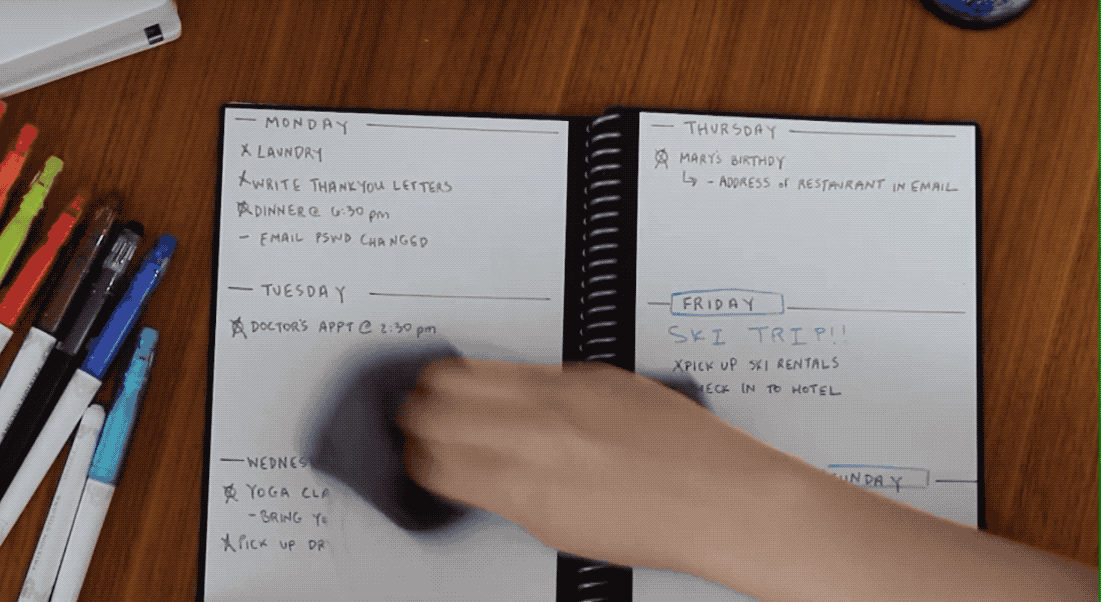 MONDAY
X LAUNDRY
X WRITE THANKYOU LETTERS
DINNER @ 6:30 pm
- EMAIL PSWD CHANGED
TUESDAY
DOCTOR'S APPT @ 2:30 pm
WEDNES
YOGA CLA
- BRING YO
X PICK UP DR
THURSDAY
MARY'S BIRTHDY
↳ - ADDRESS of RESTAURANT IN EMAIL
FRIDAY
SKI TRIP!!
X PICK UP SKI RENTALS
ECK IN TO HOTEL
UNDAY